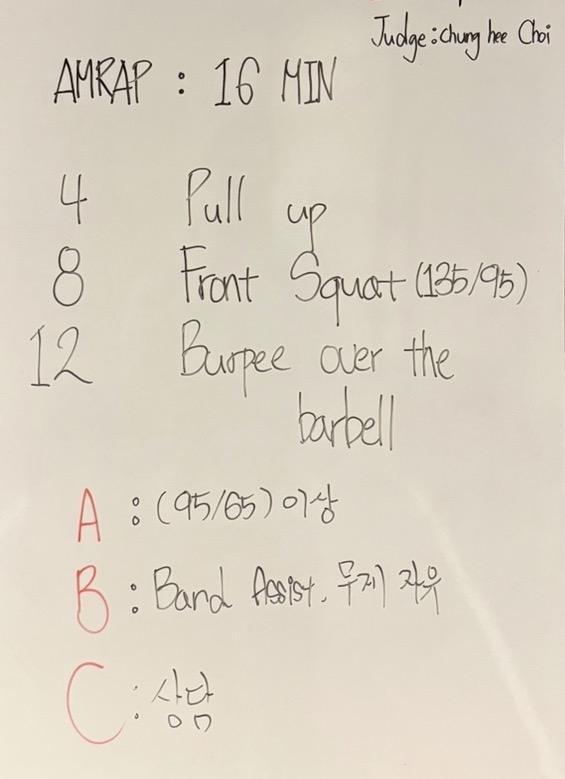 Judge : chung hee Choi
AMRAP : 16 MIN
4 Pull up
8 Front Squat (135/95)
12 Burpee over the
barbell
A : (95/65) 이상
B : Band Assist. 무게 자유
C : 상담